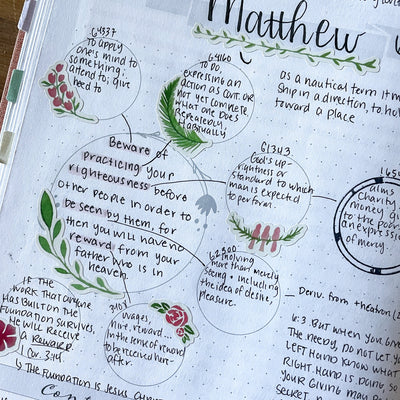 Matthew
G4337
to apply
one's mind to
something;
attend to; give
heed to
G4160
TO DO,
expressing an
action as cont. or
not yet complete,
what one does
repeatedly,
habitually
as a nautical term it m
ship in a direction, to ho
toward a place
Beware of
practicing your
righteousness before
other people in order to
be seen by them, for
then you will have no
reward from your
father who is in
heaven.
G1343
God's up-
rightness or
standard to which
man is expected
to perform.
alms
charity
money gi
to the poor
an expression
of mercy.
involving
more than merely
seeing + including
the idea of desire,
pleasure.
Deriv. from theatron (2
IF THE
WORK THAT ANYONE
HAS BUILT ON THE
FOUNDATION SURVIVES,
HE WILL RECEIVE
A REWARD.
1 Cor. 3:14
↳ THE FOUNDATION IS JESUS CHRIST
wages,
hire, reward
in the sense of reward
to be received here-
after.
6:3 BUT WHEN YOU GIVE
THE NEEDY, DO NOT LET YO
LEFT HAND KNOW WHAT
RIGHT HAND IS DOING SO
YOUR GIVING MAY BE
SECRET